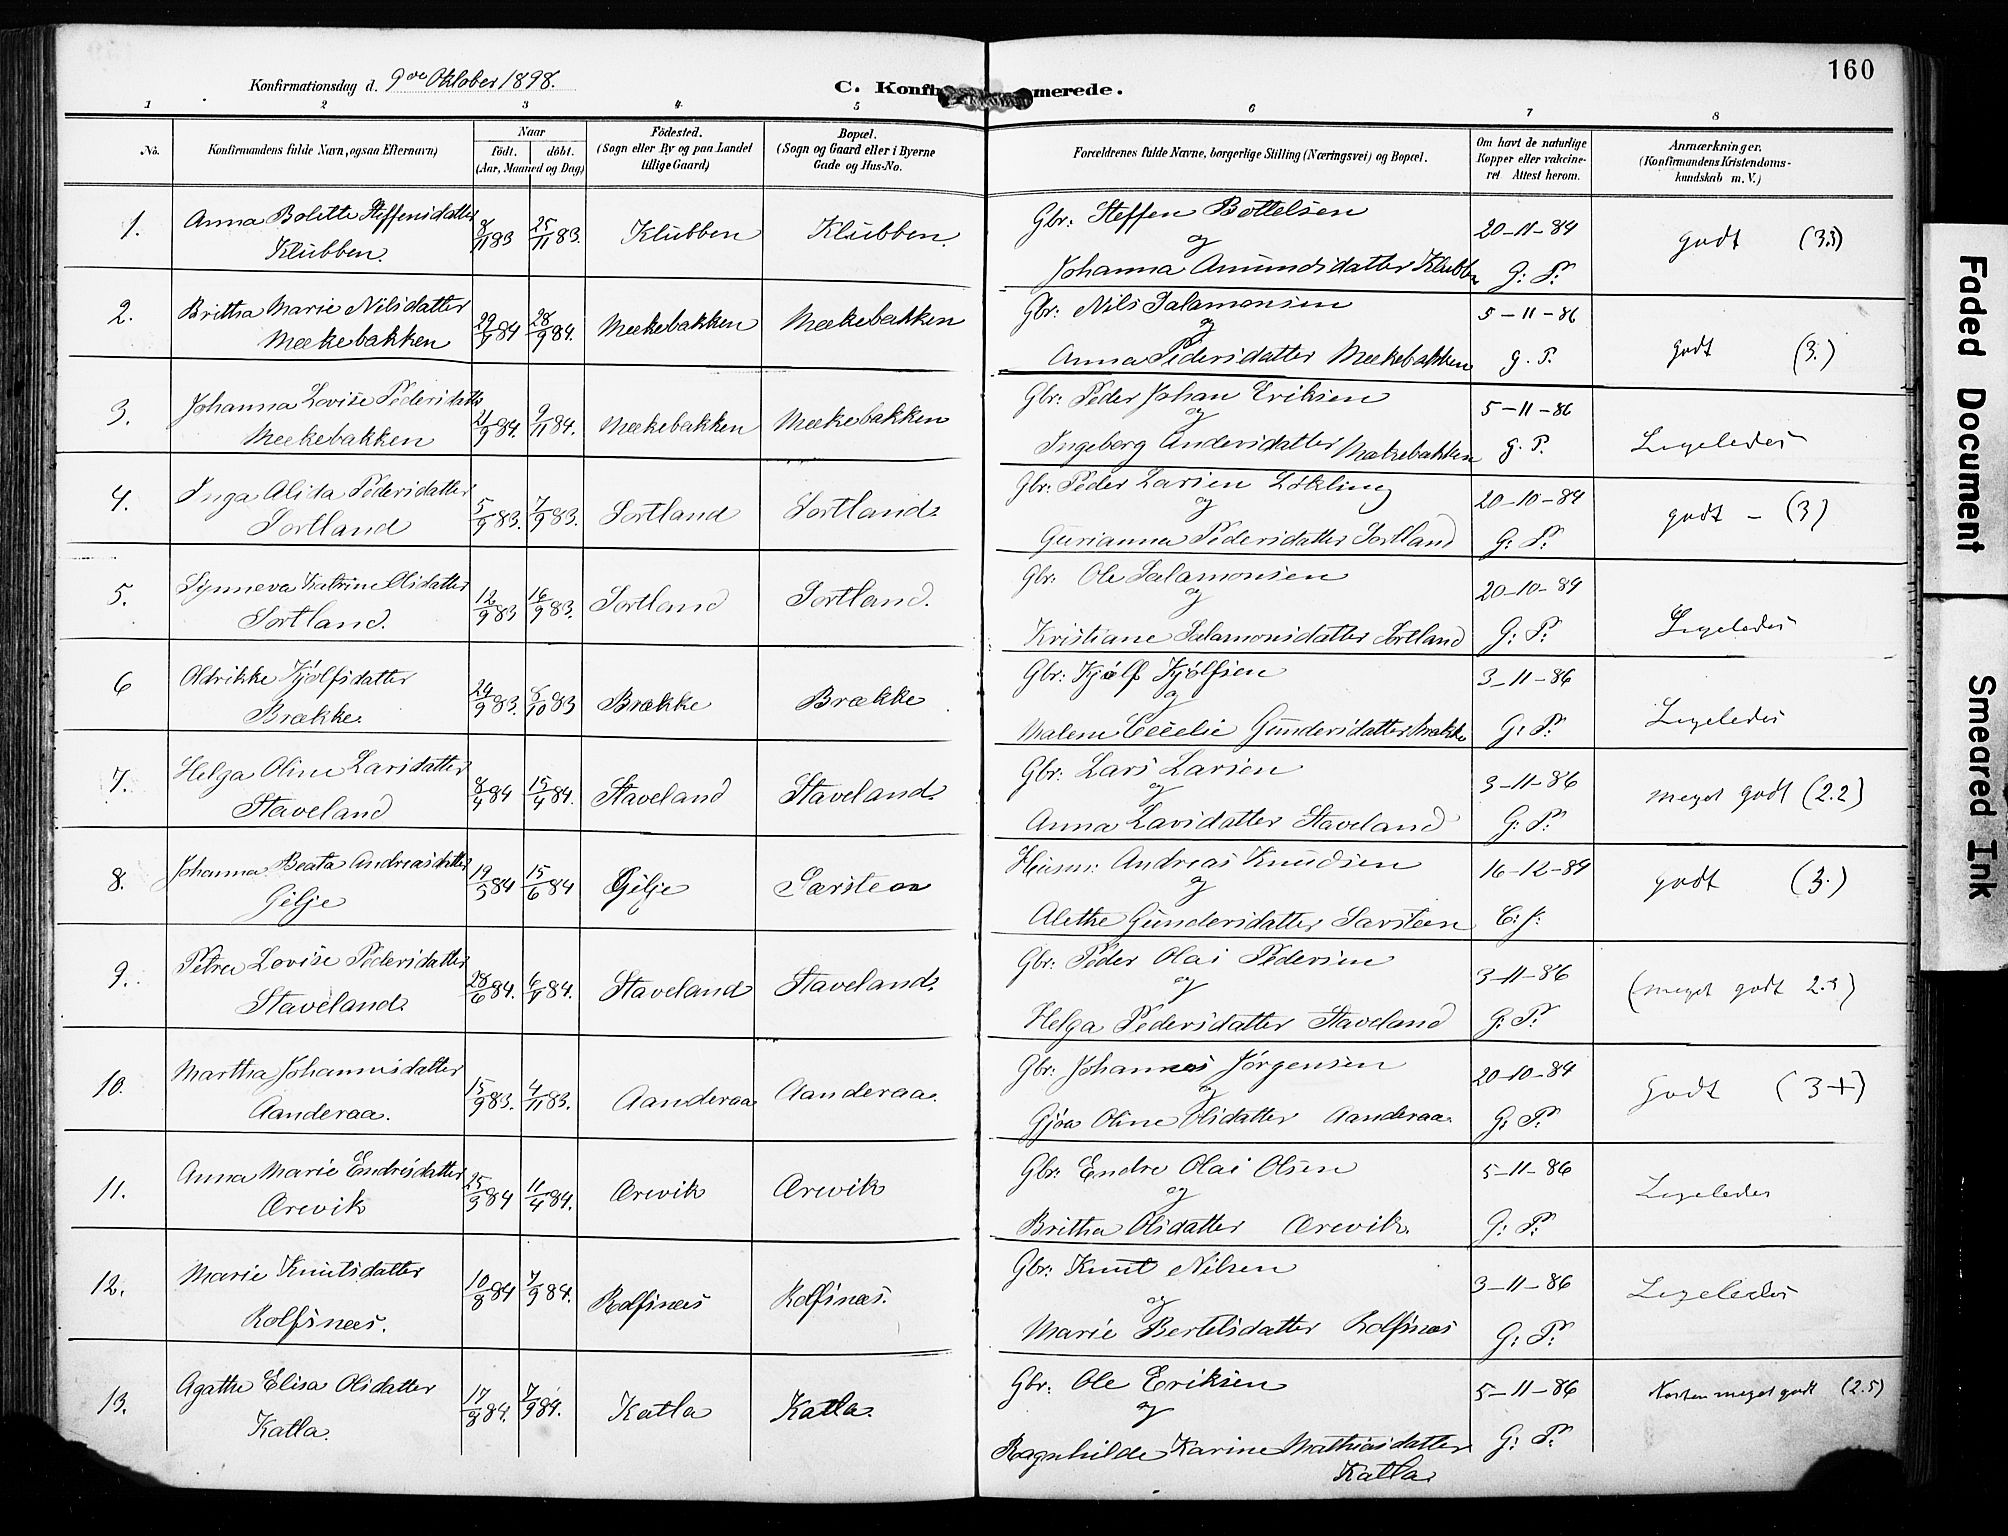 160
Konfirmationsdag d. 9de Oktober 1898.
C. Konfir merede.
1 2 3 4 5 6 7 8
No.
Konfirmandens fulde Navn, ogsaa Efternavn)
Naar
födt. döbt.
(Aar, Maaned og Dag)
Födested.
(Sogn eller By og paa Landet
tillige Gaard)
Bopæl.
(Sogn og Gaard eller i Byerne
Gade og Hus-No.
Forældrenes fulde Navne, borgerlige Stilling (Næringsvei) og Bopæl.
Om havt de naturlige
Kopper eller vakcine-
ret Attest herom.
Anmærkninger.
(Konfirmandens Kristendoms-
kundskab m. V.)
1. Anna Bolette Steffensdatter
Klubben.
8/11 83 25/11 83. Klubben Klubben.
Gbr: Steffen Bottelsen
og
Johanna Amundsdatter Klubben
20-11-84
G: P:
godt (3.)
2. Britha Marie Nilsdatter
Mækebakken
28/9 84. Mækebakken Mækebakken
Gbr: Nils Salamonsen
og
Anna Pedersdatter Mækebakken
5-11-86
g. P.
godt (3.)
3. Johanna Lovise Pedersdatter
Mækebakken
21/9 84. 9/11 84. Mækebakken Mækebakken
Gbr: Peder Johan Eriksen
og
Ingeborg Andersdatter Mækebakken
5-11-86
g. P.
Ligeledes
4. Inga Alida Pedersdatter
Sortland
5/9 83. 7/9 83. Sortland Sortland.
Gbr: Peder Larsen Lökling
og
Gurianna Pedersdatter Sortland
20-10-84
G: P:
godt - (3)
5. Synneva Katrine Olsdatter
Sortland.
12/9 83 16/9 83. Sortland Sortland.
Gbr: Ole Salamonsen
og
Kristiane Salamonsdatter Sortland
20-10-84
G: P:
Ligeledes
6 Oldrikke Kjölfsdatter
Brække.
29/9 83. /10 83 Brække Brække
Gbr: Kjölf Kjölfsen
og
Malene Cecelie Gundersdatter Brække
3-11-86
G: P:
Ligeledes
7. Helga Oline Larsdatter
Staveland
8/4 84 15/4 84. Staveland Staveland.
Gbr: Lars Larsen
og
Anna Larsdatter Staveland
3-11-86
G: P:
meget godt (2.2)
8. Johanna Beata Andreasdatter
Gilje
19/5 84 15/6 84 Gilje Sarsteen
Husm: Andreas Knudsen
og
Alethe Gundersdatter Sarsteen
16-12-84
C: J:
godt (3.)
9. Petra Lovise Pedersdatter
Staveland.
28/6 84. Staveland Staveland.
Gbr: Peder Olai Pedersen
og
Helga Pedersdatter Staveland
3-11-86
G: P:
(meget godt 2.)
10. Martha Johannesdatter
Aanderaa.
15/9 83. 4/11 83. Aanderaa Aanderaa.
Gbr: Johannes Jörgensen
og
Gjöa Oline Olsdatter Aanderaa.
20-10-84
G: P:
Godt (3+)
11. Anna Marie Endresdatter
Ørevik
25/3 84 11/4 84. Ørevik Ørevik
Gbr: Endre Olai Olsen
og
Britha Olsdatter Ørevik.
5-11-86
G: P:
Ligeledes
12. Marie Knutsdatter
Rolfsnæs.
10/8 84 7/9 84. Rolfsnæs Rolfsnæs.
Gbr: Knut Nilsen
og
Marie Bertelsdatter Rolfsnæs
3-11-86
G: P:
Ligeledes
13. Agathe Elisa Olsdatter
Katla.
17/8 84. 7/9 84. Katla Katla.
Gbr: Ole Eriksen
og
Ragnhilde Karine Mathiasdatter
Katla.
5-11-86
G: P:
Næsten meget godt (2.5)
Faded Document
Smeared Ink